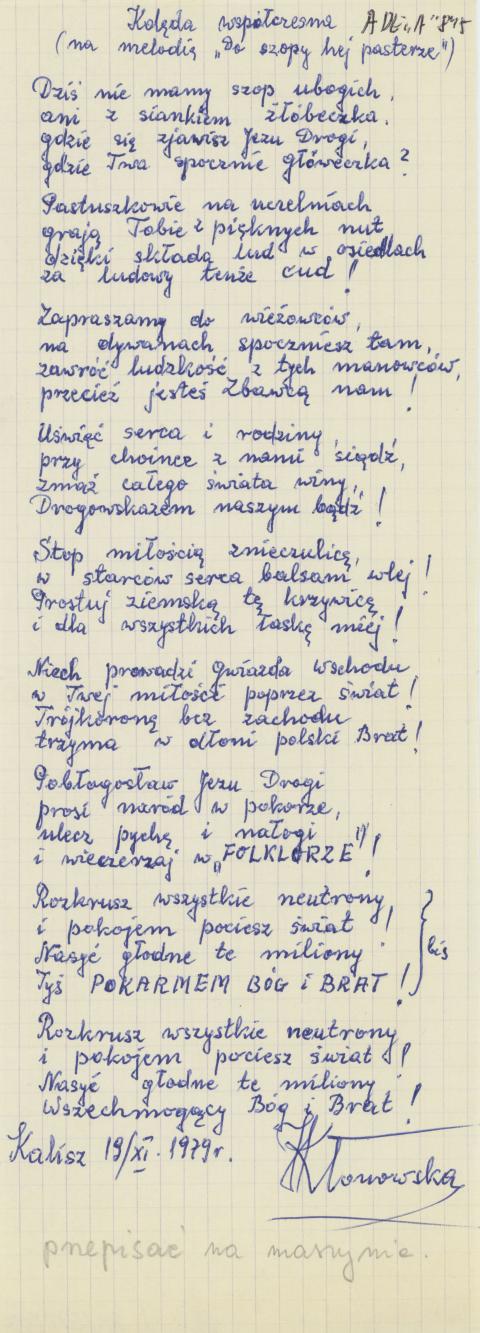 Kolęda współczesna
(na melodię „Do szopy hej pasterze")
Dziś nie mamy szop ubogich,
ani z siankiem żłóbeczka.
gdzie się zjawisz Jezu Drogi,
gdzie Twa spocznie główeczka?
Pastuszkowie na uczelniach
grają Tobie z pięknych nut
dzięki składa lud w osiedlach
za ludowy tenże cud!
Zapraszamy do wieżowców,
na dywanach spoczniesz tam,
zawróć ludzkość z tych manowców,
przecież jesteś Zbawcą nam!
Uświęć serca i rodziny,
przy choince z nami siądź,
zmaż całego świata winy,
Drogowskazem naszym bądź!
Stop miłością znieczulicę,
w starców serca balsam wlej!
Prostuj ziemską tę krzywicę
i dla wszystkich łaskę miej!
Niech prowadzi Gwiazda Wschodu
w Twej miłości poprzez świat!
Trójkoroną bez zachodu
trzyma w dłoni polski Brat!
Pobłogosław Jezu Drogi
prosi naród w pokorze,
ulecz pychę i nałogi
i wieczerzaj w „FOLKLORZE"!
Rozkrusz wszystkie neutrony
i pokojem pociesz świat!
Nasyć głodne te miliony
Tyś POKARMEM BÓG i BRAT!
bis
Rozkrusz wszystkie neutrony
i pokojem pociesz świat!
Nasyć głodne te miliony
Wszechmogący Bóg i Brat!
Kalisz 19/XI. 1979r.
KTonowska
przepisać na maszynie.